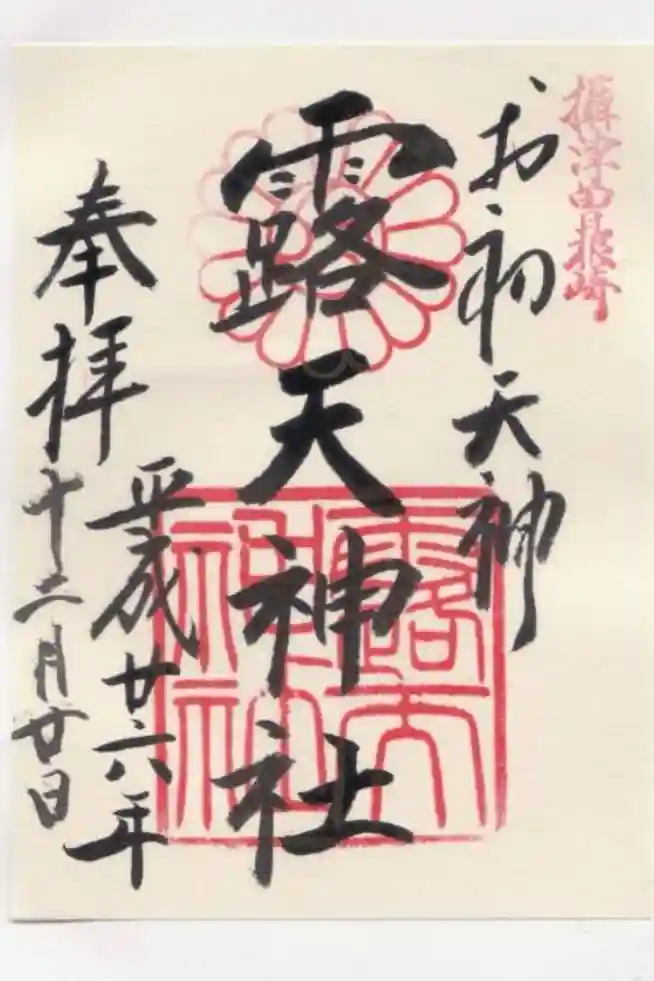 摂津曽根崎
お初天神
露天神社
露天神社
奉拝
平成廿六年
十二月廿日